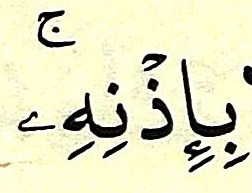 بِإِذۡنِهِۦۚ